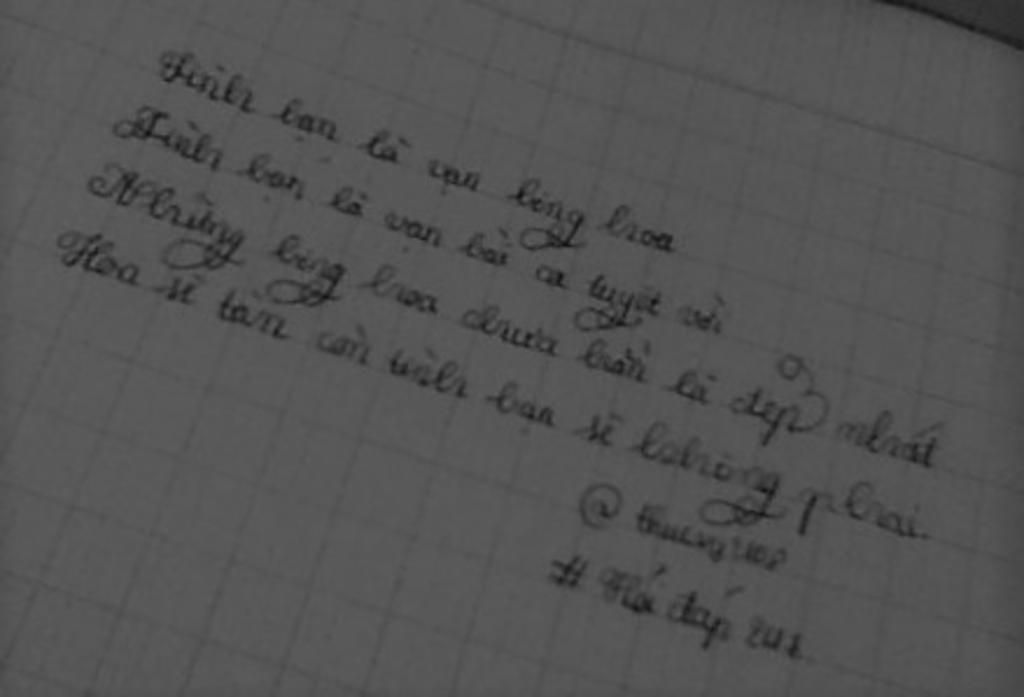 Tình bạn là vạn bông hoa
Tình bạn là vạn bài ca tuyệt vời
Những bông hoa chưa hẳn là đẹp nhất
Hoa sẽ tàn còn tình bạn sẽ không phai.
@
# Hỏi đáp 247